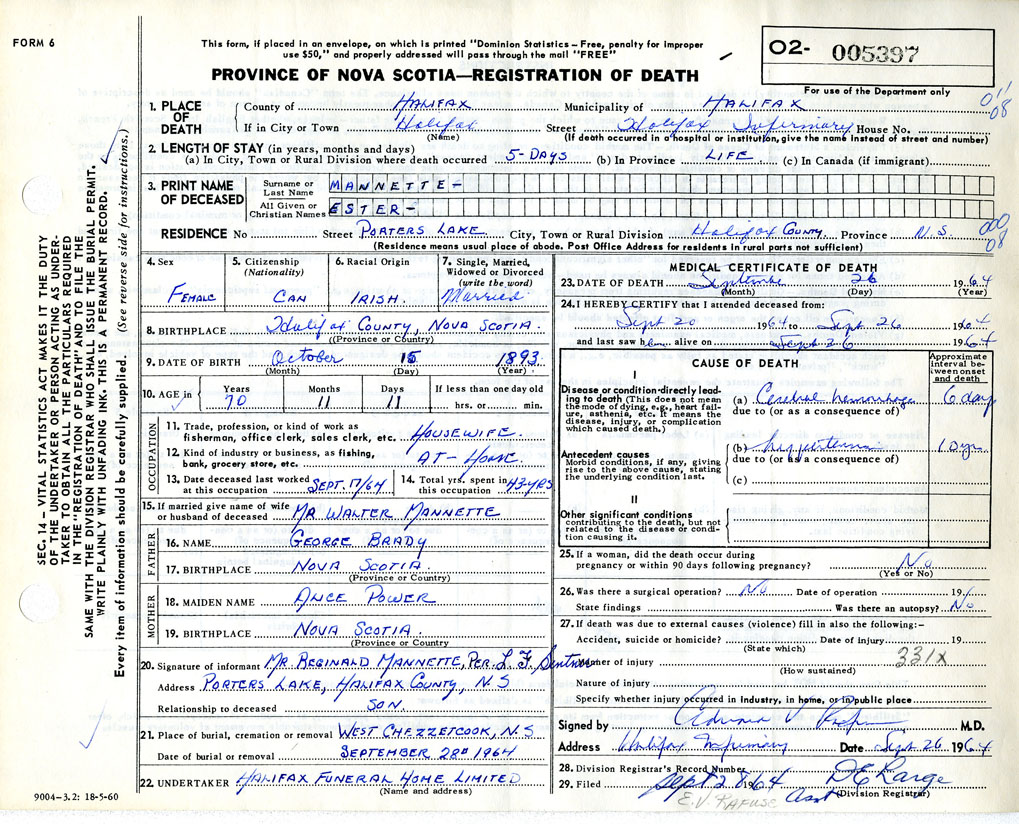 FORM 6
This form, if placed in an envelope, on which is printed "Dominion Statistics – Free, penalty for improper
use $50," and properly addressed will pass through the mail "FREE"
PROVINCE OF NOVA SCOTIA—REGISTRATION OF DEATH
O2- 005397
For use of the Department only
SEC. 14 – VITAL STATISTICS ACT MAKES IT THE DUTY
OF THE UNDERTAKER OR PERSON ACTING AS UNDER-
TAKER TO OBTAIN ALL THE PARTICULARS REQUIRED
IN THE "REGISTRATION OF DEATH" AND TO FILE THE
SAME WITH THE DIVISION REGISTRAR WHO SHALL ISSUE THE BURIAL PERMIT.
WRITE PLAINLY WITH UNFADING INK. THIS IS A PERMANENT RECORD.
Every item of information should be carefully supplied. (See reverse side for instructions.)
1. PLACE OF DEATH
County of HALIFAX Municipality of HALIFAX
If in City or Town Halifax Street Halifax Infirmary House No.
(Name) (If death occurred in a hospital or institution, give the name instead of street and number)
2. LENGTH OF STAY (in years, months and days)
(a) In City, Town or Rural Division where death occurred 5-DAYS (b) In Province LIFE (c) In Canada (if immigrant)
3. PRINT NAME OF DECEASED
Surname or Last Name MANNETTE-
All Given or Christian Names ESTER-
RESIDENCE No Street PORTERS LAKE. City, Town or Rural Division Halifax County. Province N.S.
(Residence means usual place of abode. Post Office Address for residents in rural parts not sufficient)
011
08
000
08
4. Sex
FEMALE
5. Citizenship
(Nationality)
CAN
6. Racial Origin
IRISH.
7. Single, Married,
Widowed or Divorced
(write the word)
Married
8. BIRTHPLACE Halifax COUNTY, NOVA SCOTIA.
((Province or Country)
9. DATE OF BIRTH October 15 1893.
(Month) (Day) (Year)
10. AGE in Years 70 Months 11 Days 11 If less than one day old
hrs. or min.
OCCUPATION
11. Trade, profession, or kind of work as
fisherman, office clerk, sales clerk, etc. HOUSEWIFE.
12. Kind of industry or business, as fishing,
bank, grocery store, etc. AT-HOME.
13. Date deceased last worked
at this occupation SEPT. 17/64
14. Total yrs. spent in
this occupation 43-YRS
15. If married give name of wife
or husband of deceased MR WALTER MANNETTE
FATHER
16. NAME GEORGE BRADY
17. BIRTHPLACE NOVA SCOTIA.
(Province or Country)
MOTHER
18. MAIDEN NAME ANCE POWER
19. BIRTHPLACE NOVA SCOTIA.
(Province or Country
20. Signature of informant MR. REGINALD MANNETTE, PER. L. F.
Address PORTERS LAKE, HALIFAX COUNTY, N.S
Relationship to deceased SON.
21. Place of burial, cremation or removal WEST CHEZZETCOOK, N.S
Date of burial or removal SEPTEMBER 28th 1964
22. UNDERTAKER HALIFAX FUNERAL HOME LIMITED
(Name and address)
9004-3.2: 18-5-60
MEDICAL CERTIFICATE OF DEATH
23. DATE OF DEATH September 26 1964
(Month) (Day) (Year)
24. I HEREBY CERTIFY that I attended deceased from:
Sept 20 1964 to Sept 26 1964
and last saw her alive on Sept 26 1964
CAUSE OF DEATH
Approximate
interval be-
tween onset
and death
I
Disease or condition directly lead-
ing to death (This does not mean
the mode of dying, e.g., heart fail-
ure, asthenia, etc. It means the
disease, injury, or complication
which caused death.)
(a) Cerebral hemorrhage 6 days
due to (or as a consequence of)
Antecedent causes
Morbid conditions, if any, giving
rise to the above cause, stating
the underlying condition last.
(b) hypertension
due to (or as a consequence of)
(c)
II
Other significant conditions
contributing to the death, but not
related to the disease or condi-
tion causing it.
25. If a woman, did the death occur during
pregnancy or within 90 days following pregnancy? No
(Yes or No)
26. Was there a surgical operation? No Date of operation 19
State findings Was there an autopsy? No
27. If death was due to external causes (violence) fill in also the following:–
Accident, suicide or homicide? Date of injury 19
(State which)
Manner of injury 331X
(How sustained)
Nature of injury
Specify whether injury occurred in industry, in home, or in public place
Signed by M.D.
Address Halifax Infirmary Date Sept 26 1964
28. Division Registrar's Record Number
29. Filed Sept 28 1964 D E Large
Asst (Division Registrar)
E.V. RAFUSE